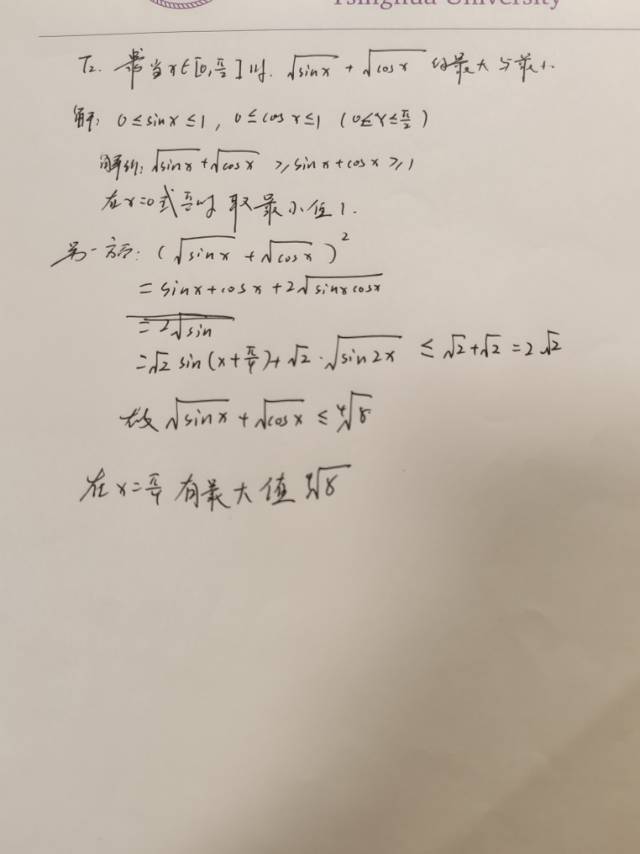 Tsinghua University
T2. 当x∈[0,π/2]时. √sinx + √cosx 的最大与最小.
解: 0≤sinx≤1, 0≤cosx≤1 (0≤x≤π/2)
√sinx+√cosx ≥ sinx+cosx ≥1
在x=0或π/2时 取最小值1.
另一方面: (√sinx + √cosx)²
= sinx+cosx+2√sinxcosx
= 2√sin
= √2 sin(x+π/4)+√2·√sin2x ≤ √2+√2=2√2
故 √sinx+√cosx ≤ ⁴√8
在x=π/4有最大值 ⁴√8